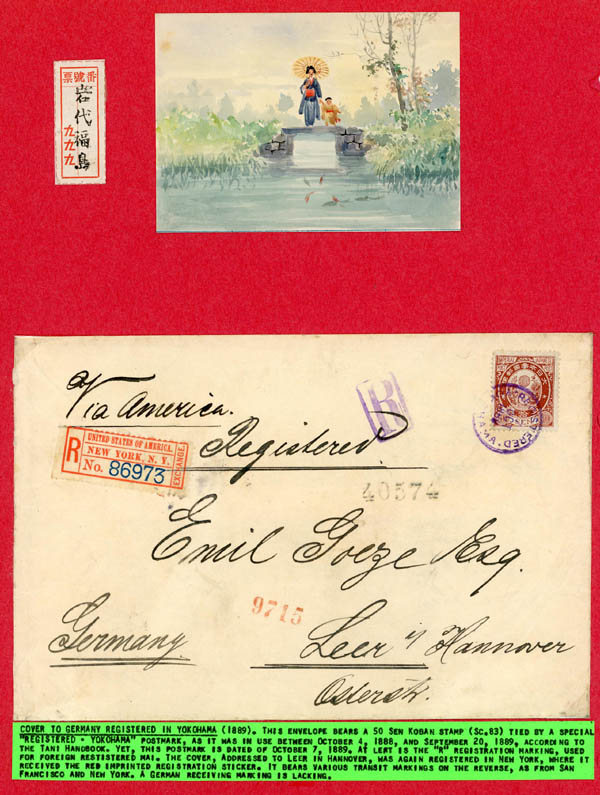 番號票
岩代福島
九九九
Via America.
R
Registered
R
UNITED STATES OF AMERICA.
NEW YORK, N. Y.
No. 86973
EXCHANGE.
40574
Emil Goeze Esq.
9715
Germany
Leer i/ Hannover
Osterstr.
COVER TO GERMANY REGISTERED IN YOKOHAMA (1889). THIS ENVELOPE BEARS A 50 SEN KOBAN STAMP (SC.83) TIED BY A SPECIAL
"REGISTERED - YOKOHAMA" POSTMARK, AS IT WAS IN USE BETWEEN OCTOBER 4, 1888, AND SEPTEMBER 20, 1889, ACCORDING TO
THE TANI HANDBOOK. YET, THIS POSTMARK IS DATED OF OCTOBER 7, 1889. AT LEFT IS THE "R" REGISTRATION MARKING, USED
FOR FOREIGN RESTISTERED MAI. THE COVER, ADDRESSED TO LEER IN HANNOVER, WAS AGAIN REGISTERED IN NEW YORK, WHERE IT
RECEIVED THE RED IMPRINTED REGISTRATION STICKER. IT BEARS VARIOUS TRANSIT MARKINGS ON THE REVERSE, AS FROM SAN
FRANCISCO AND NEW YORK. A GERMAN RECEIVING MARKING IS LACKING.